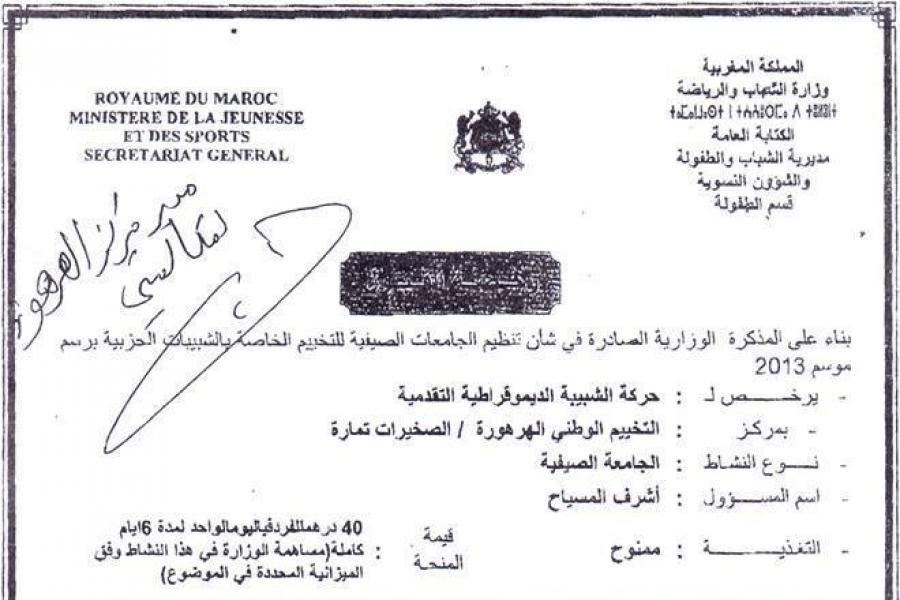 المملكة المغربية
وزارة الشباب والرياضة
ⵜⴰⵎⴰⵡⴰⵙⵜ ⵏ ⵜⴷⵓⵙⵉ ⴷ
الكتابة العامة
مديرية الشباب والطفولة
والشؤون النسوية
قسم الطفولة
ROYAUME DU MAROC
MINISTERE DE LA JEUNESSE
ET DES SPORTS
SECRETARIAT GENERAL
مركز الهرهورة
بناء على المذكرة الوزارية الصادرة في شأن تنظيم الجامعات الصيفية للتخييم الخاصة بالشبيبات الحزبية برسم
موسم 2013
- يرخـــــص لـ : حركة الشبيبة الديموقراطية التقدمية
- بمركـز : التخييم الوطني الهرهورة / الصخيرات تمارة
- نـــوع النشاط : الجامعة الصيفية
- اسم المســـؤول : أشرف المسياح
- التغذيـــــــة : ممنوح
قيمة المنحـة : 40 درهماللفردفياليومالواحد لمدة 6ايام
كاملة(مساهمة الوزارة في هذا النشاط وفق
الميزانية المحددة في الموضوع)